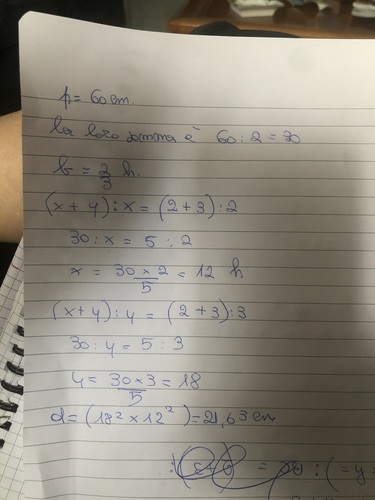 p = 60 cm.
la loro somma è 60 : 2 = 30
b = 2/3 h.
(x + y) : x = (2 + 3) : 2
30 : x = 5 : 2
x = 30 x 2 / 5 = 12 h
(x + y) : y = (2 + 3) : 3
30 : y = 5 : 3
y = 30 x 3 / 5 = 18
d = (18² x 12²) = 21,63 cm